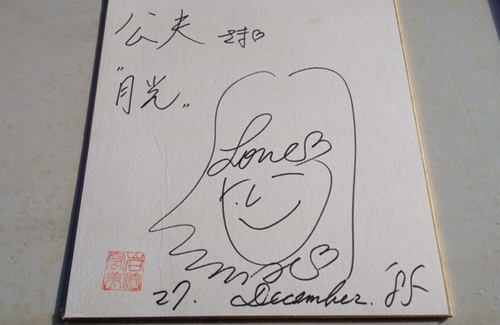 公夫 さま♡
"月光"
Love♡
27. December. '85